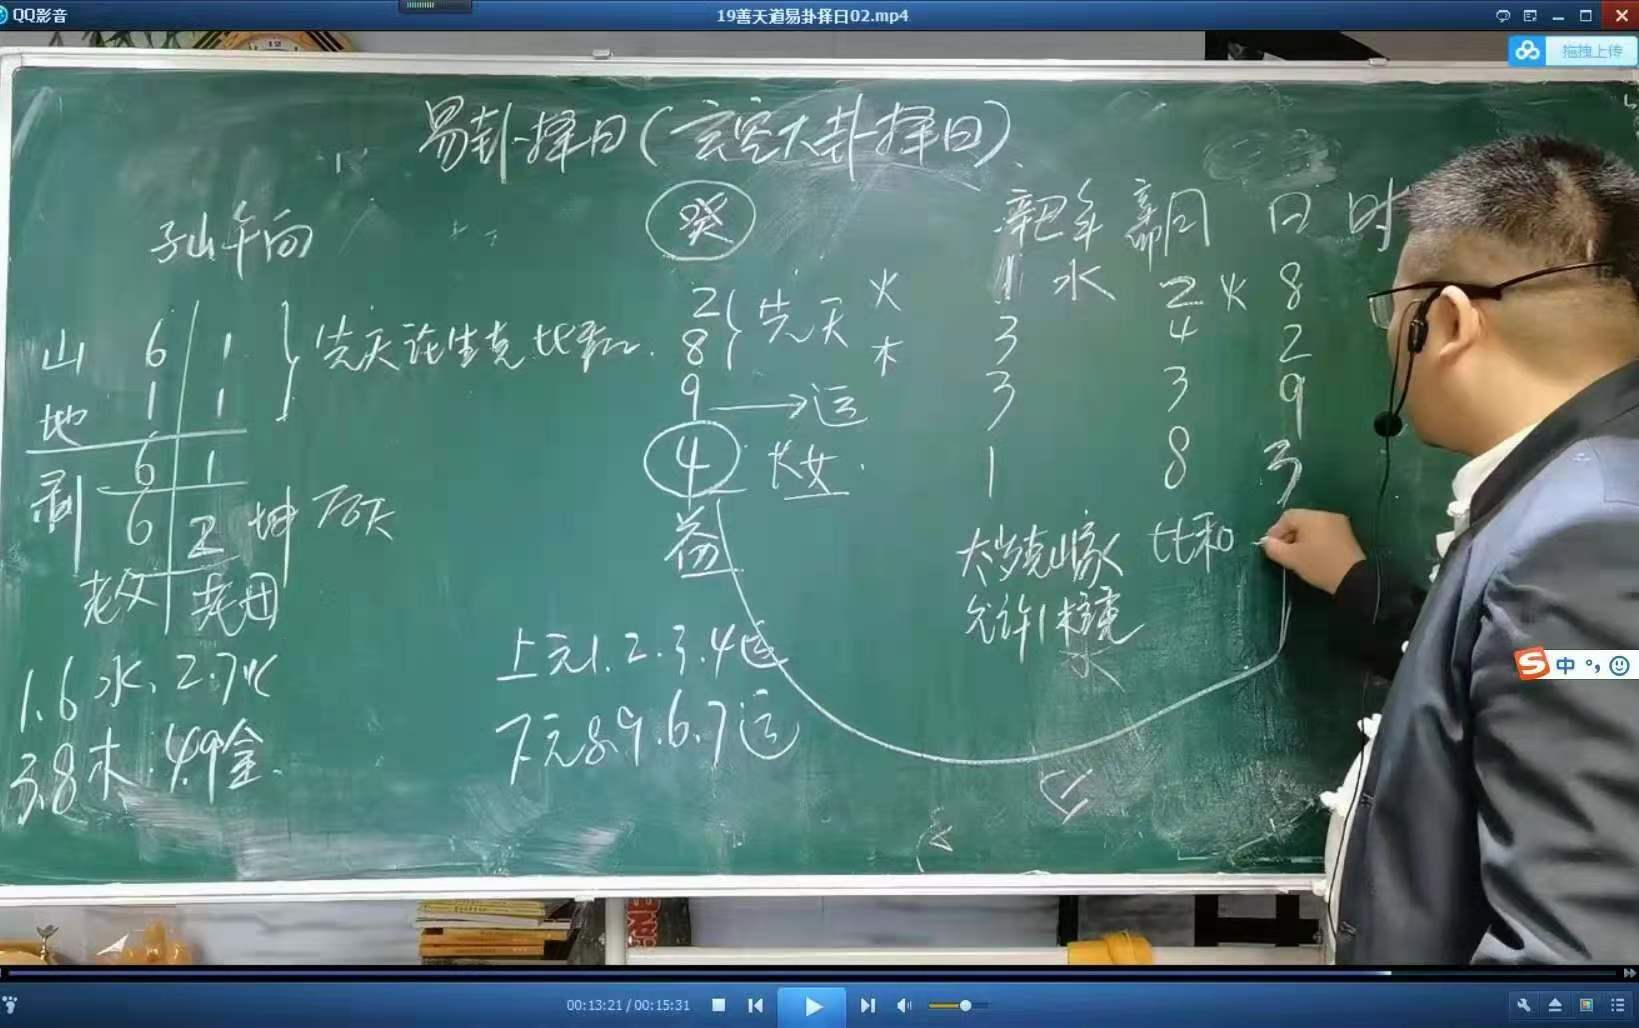 QQ影音
19善天道易卦择日02.mp4
拖拽上传
易卦择日(玄空大卦择日)
子山午向
癸
辛巴年
月
日
时
山 6 1
地 1 1
6 1
6 2 坤 后天
老父 老母
先天论生克比和
2
8
先天
火
木
9 → 运
4 长女
益
1 水
3
3
1
2 火
4
3
8
8
2
9
3
太岁克山家
允许1
水
比和
1.6水、2.7火
3.8木 4.9金
上元1.2.3.4运
下元8.9.6.7运
中
00:13:21 / 00:15:31